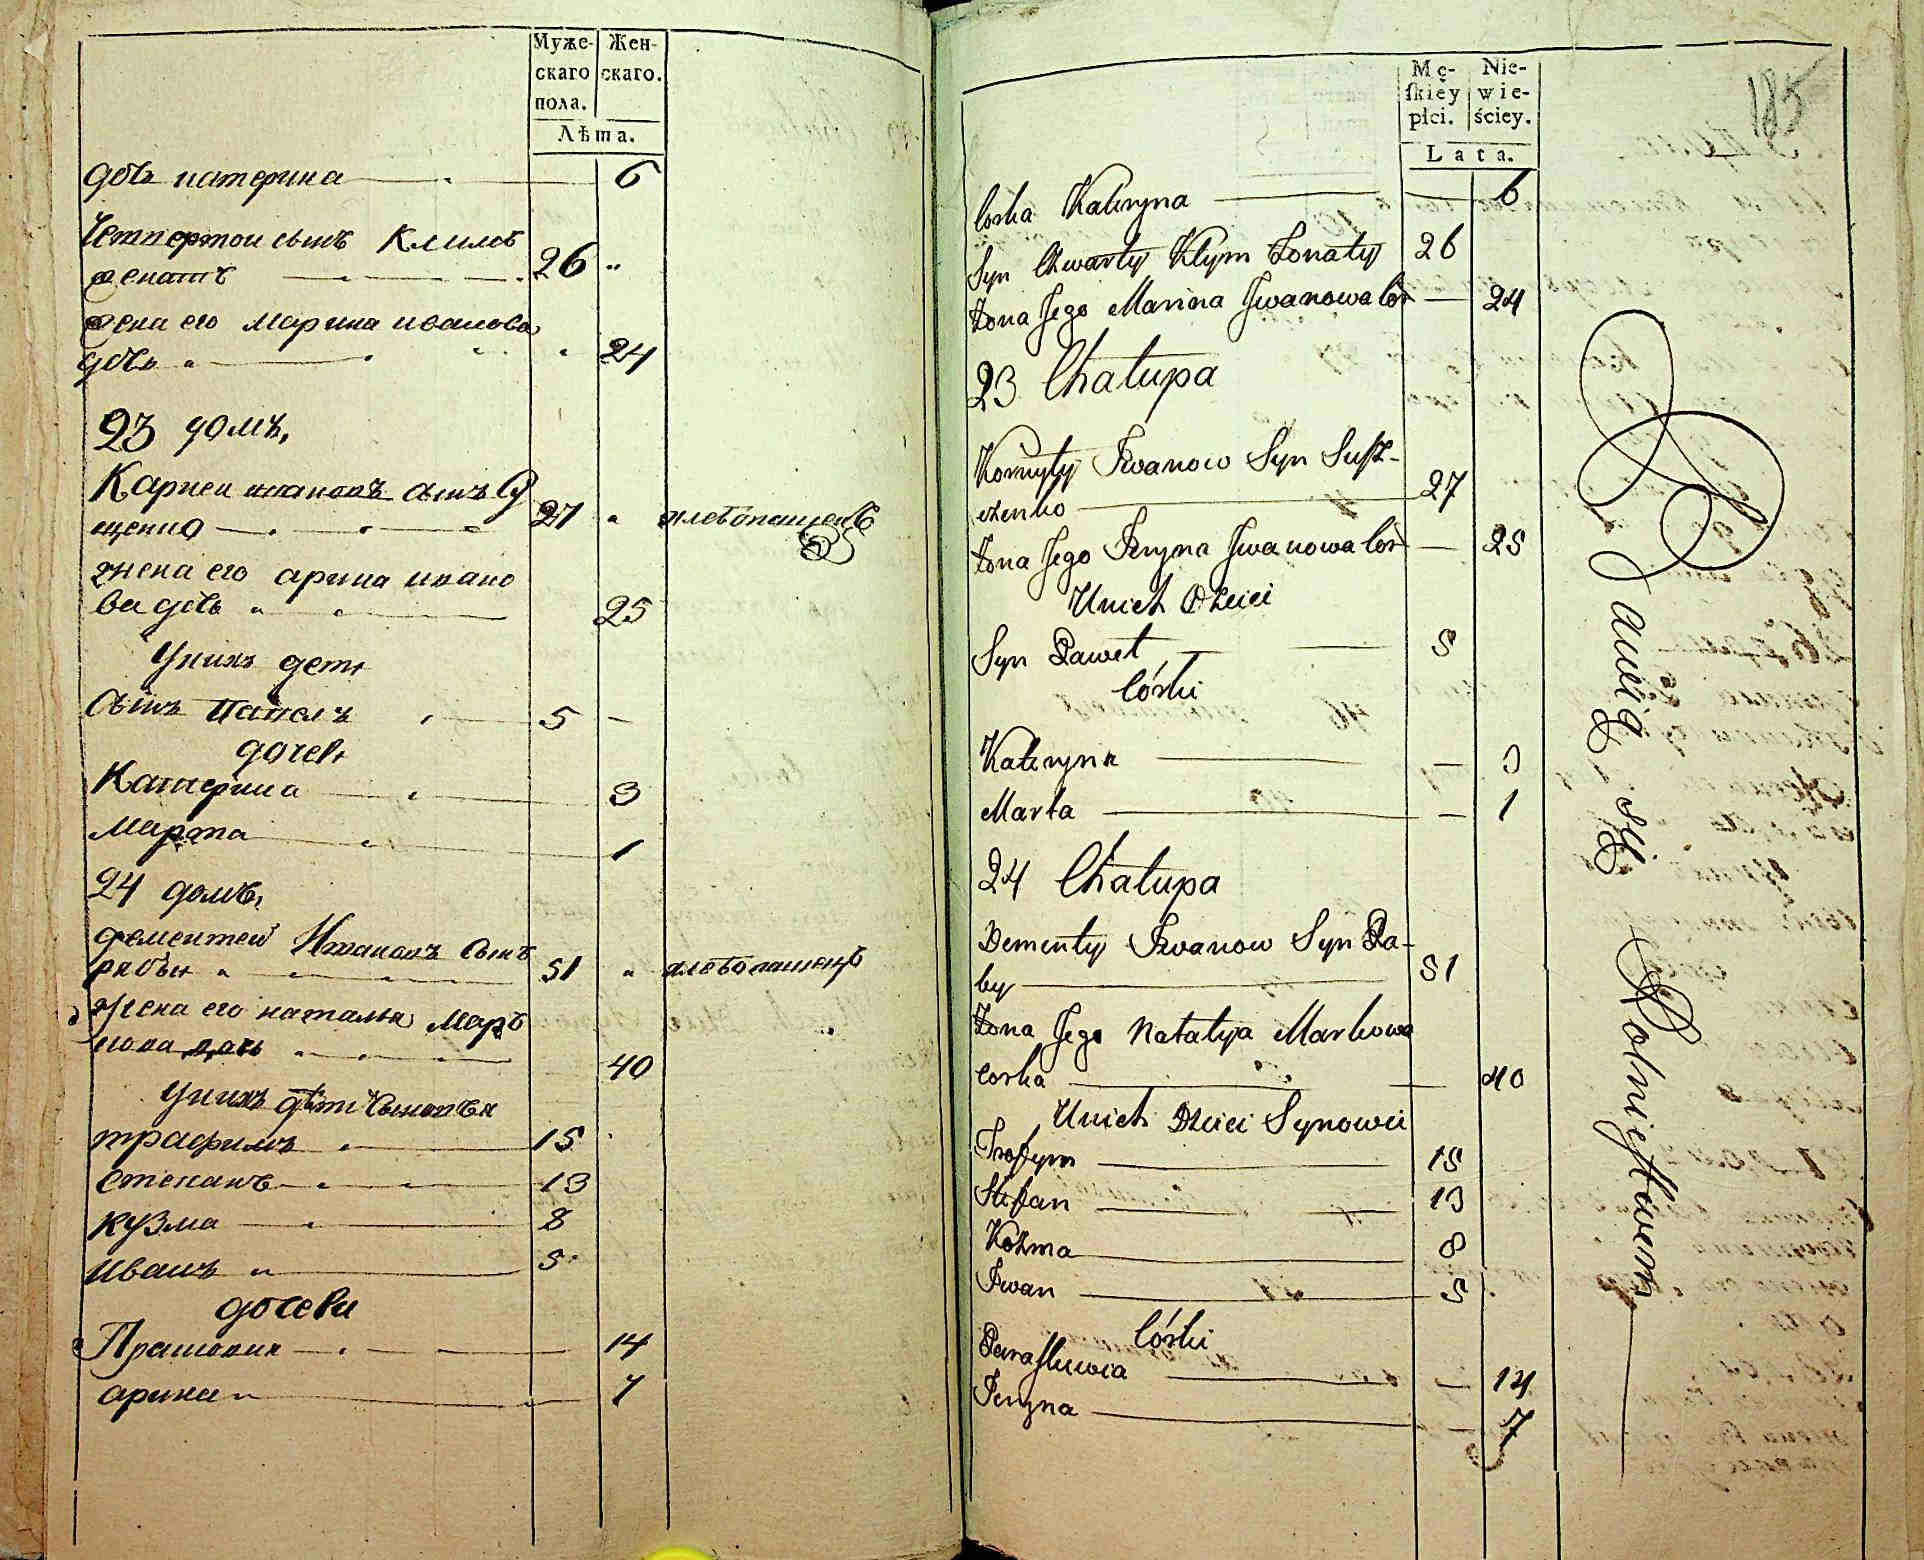 Муже-
скаго
пола.
Жен-
скаго.
Лѣта.
дочь катерина 6
Четвертой сынъ Климъ
женатъ 26
жена его Марина иванова
дочь 24
23 домъ,
Карней ивановъ сынъ Су
щенко 27 хлебопашецъ
жена его арина ивано
ва дочь 25
У них дети
Сынъ Павелъ 5
дочери
Катерина 3
Марта 1
24 домъ,
дементей Ивановъ Сынъ
рабы 51 хлебопашецъ
жена его наталья Мар
кова дочь 40
У них дети Сыновья
трафимъ 15
степанъ 13
кузма 8
иванъ 5
дочери
Прасковия 14
арина 7
Mę-
ſkiéy
płci.
Nie-
wie-
ściey.
Lata.
185
Corka Kateryna 6
Syn Czwarty Kłym Żonaty 26
Żona Jego Marina Jwanowa Cór 24
23 Chałupa
Kornyły Iwanow Syn Susz-
czenko 27
Żona Jego Jeryna Jwanowa Cor 25
Unich Dzieci
Syn Paweł 5
Córki
Kateryna 3
Marta 1
24 Chałupa
Dementy Iwanow Syn Ra-
by 51
Żona Jego Natalya Markowa
Corka 40
Unich Dzieci Synowie
Trofym 15
Stefan 13
Kożma 8
Iwan 5
Córki
Paraſkiewia 14
Jeryna 7
Bawią się Rolnictwem